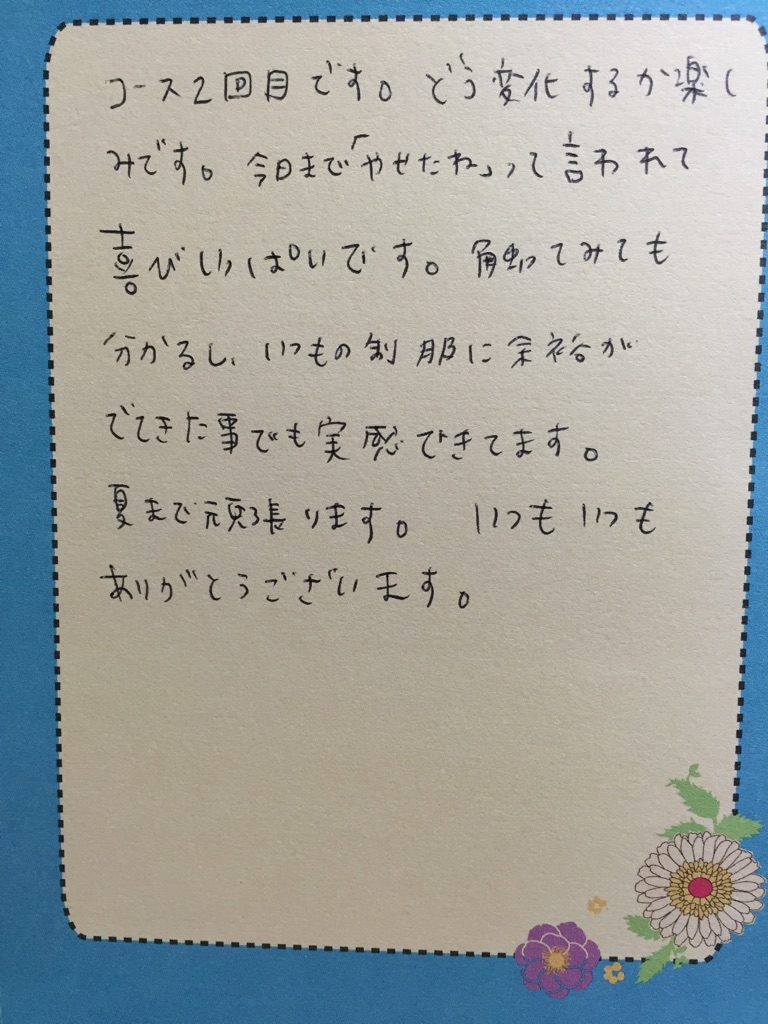 コース2回目です。どう変化するか楽し
みです。今日まで「やせたね」って言われて
喜びいっぱいです。触ってみても
分かるし、いつもの制服に余裕が
でてきた事でも実感できてます。
夏まで頑張ります。 いつもいつも
ありがとうございます。